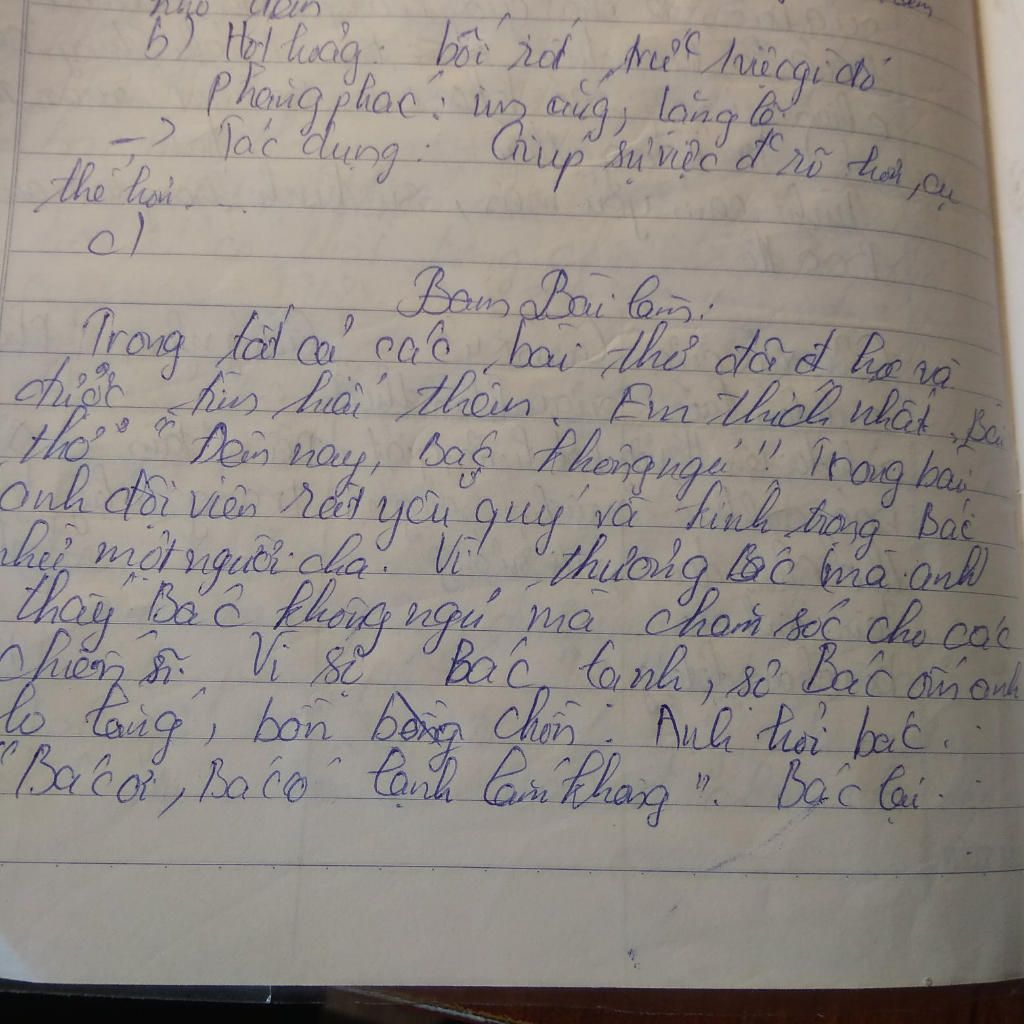 b) Hốt hoảng: bối rối trước việc gì đó
Phảng phác: im ắng, lặng lẽ
-> Tác dụng: Giúp sự việc đc rõ hơn, cụ
thể hơn...
c)
Bam Bài làm:
Trong tất cả các bài thơ đã đ học và
được tìm hiểu thêm. Em thích nhất Bài
thơ " Đêm nay, Bác không ngủ". Trong bài
anh đội viên rất yêu quý và kính trọng Bác
như một người cha. Vì thương Bác (mà anh)
thấy Bác không ngủ mà chăm sóc cho các
chiến sĩ. Vì sợ Bác lạnh, sợ Bác ốm anh
lo lắng, bồn chồn. Anh hỏi bác.
"Bác ơi, Bác có lạnh lắm không". Bác lại